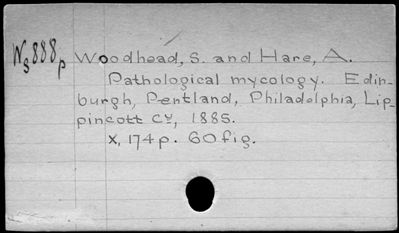 Ns888p
Woodhead, S. and Hare, A.
Pathological mycology. Edin-
burgh, Pentland, Philadelphia, Lip-
pincott Cy, 1885.
x, 174p. 60 fig.